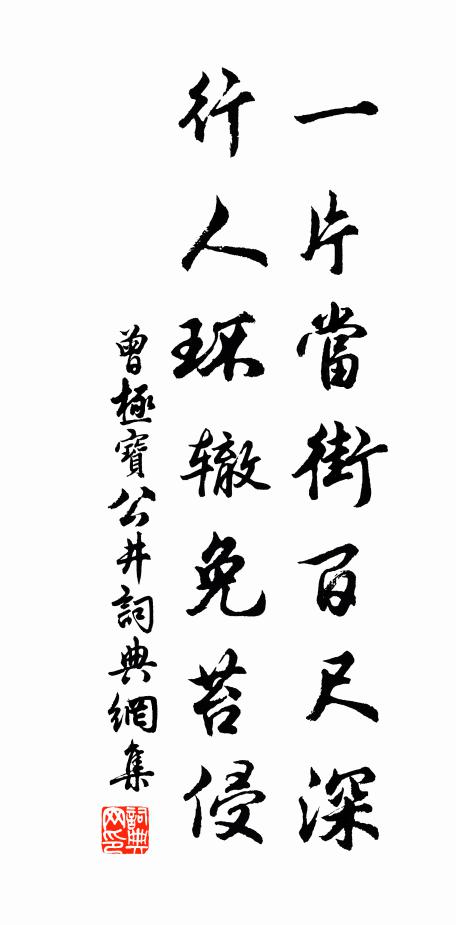 一片當街百尺深
行人环辙免苔侵
曾極寶公井詞典網集
詞典
网印